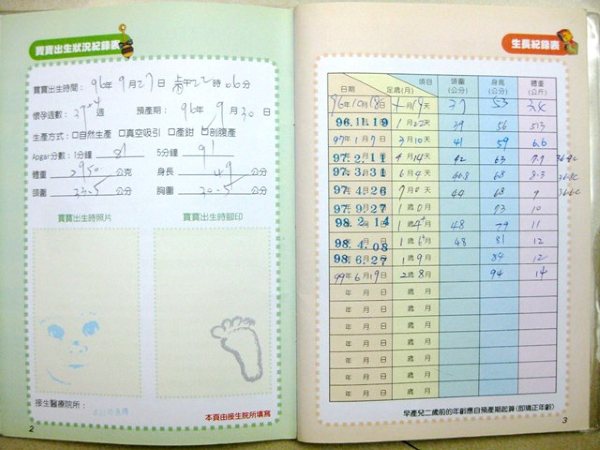 寶寶出生狀況紀錄表
寶寶出生時間：96年9月27日 22時06分
懷孕週數：37+4週 預產期：96年9月30日
生產方式：□自然生產 □真空吸引 □產鉗 □剖腹產
Apgar分數：1分鐘 8 5分鐘 9
體重 2950 公克 身長 49 公分
頭圍 33.5 公分 胸圍 30.5 公分
寶寶出生時照片 寶寶出生時腳印
接生醫療院所：
本頁由接生院所填寫
2
生長紀錄表
日期 足歲(月) 項目 頭圍(公分) 身高(公分) 體重(公斤)
96年10月18日 月 天 37 53
96.11.19 1月22天 39 56 5.3
97年1月7日 3月10天 41 59 6.6
97.2.11 4月14天 42 63 7.7
97.3.31 6月4天 68 8.3
97.4.26 7月0天 44 68 9
97.9.27 1歲0月 73 10
98.2.14 1歲4月 48 79 11
98.4.08 1歲6月 48 81 12
98.6.27 1歲9月 84 12
99年6月19日 2歲8月 94 14
年 月 日 歲 月
年 月 日 歲 月
年 月 日 歲 月
年 月 日 歲 月
年 月 日 歲 月
年 月 日 歲 月
年 月 日 歲 月
早產兒二歲前的年齡應自預產期起算(即矯正年齡)
3